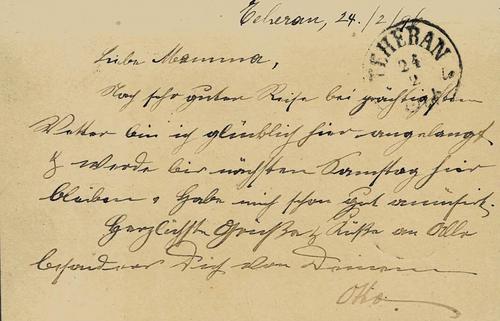 Teheran, 24./2/96
TEHERAN
24
2
Liebe Mamma,
Nach sehr guten Reise bei prächtigstem
Wetter bin ich glücklich hier angelangt
& werde bis nächsten Samstag hier
bleiben. Habe mich schon gut amüsirt.
Herzlichste Grüße & Küße an Alle
besonders Dich von Deinem
Otto